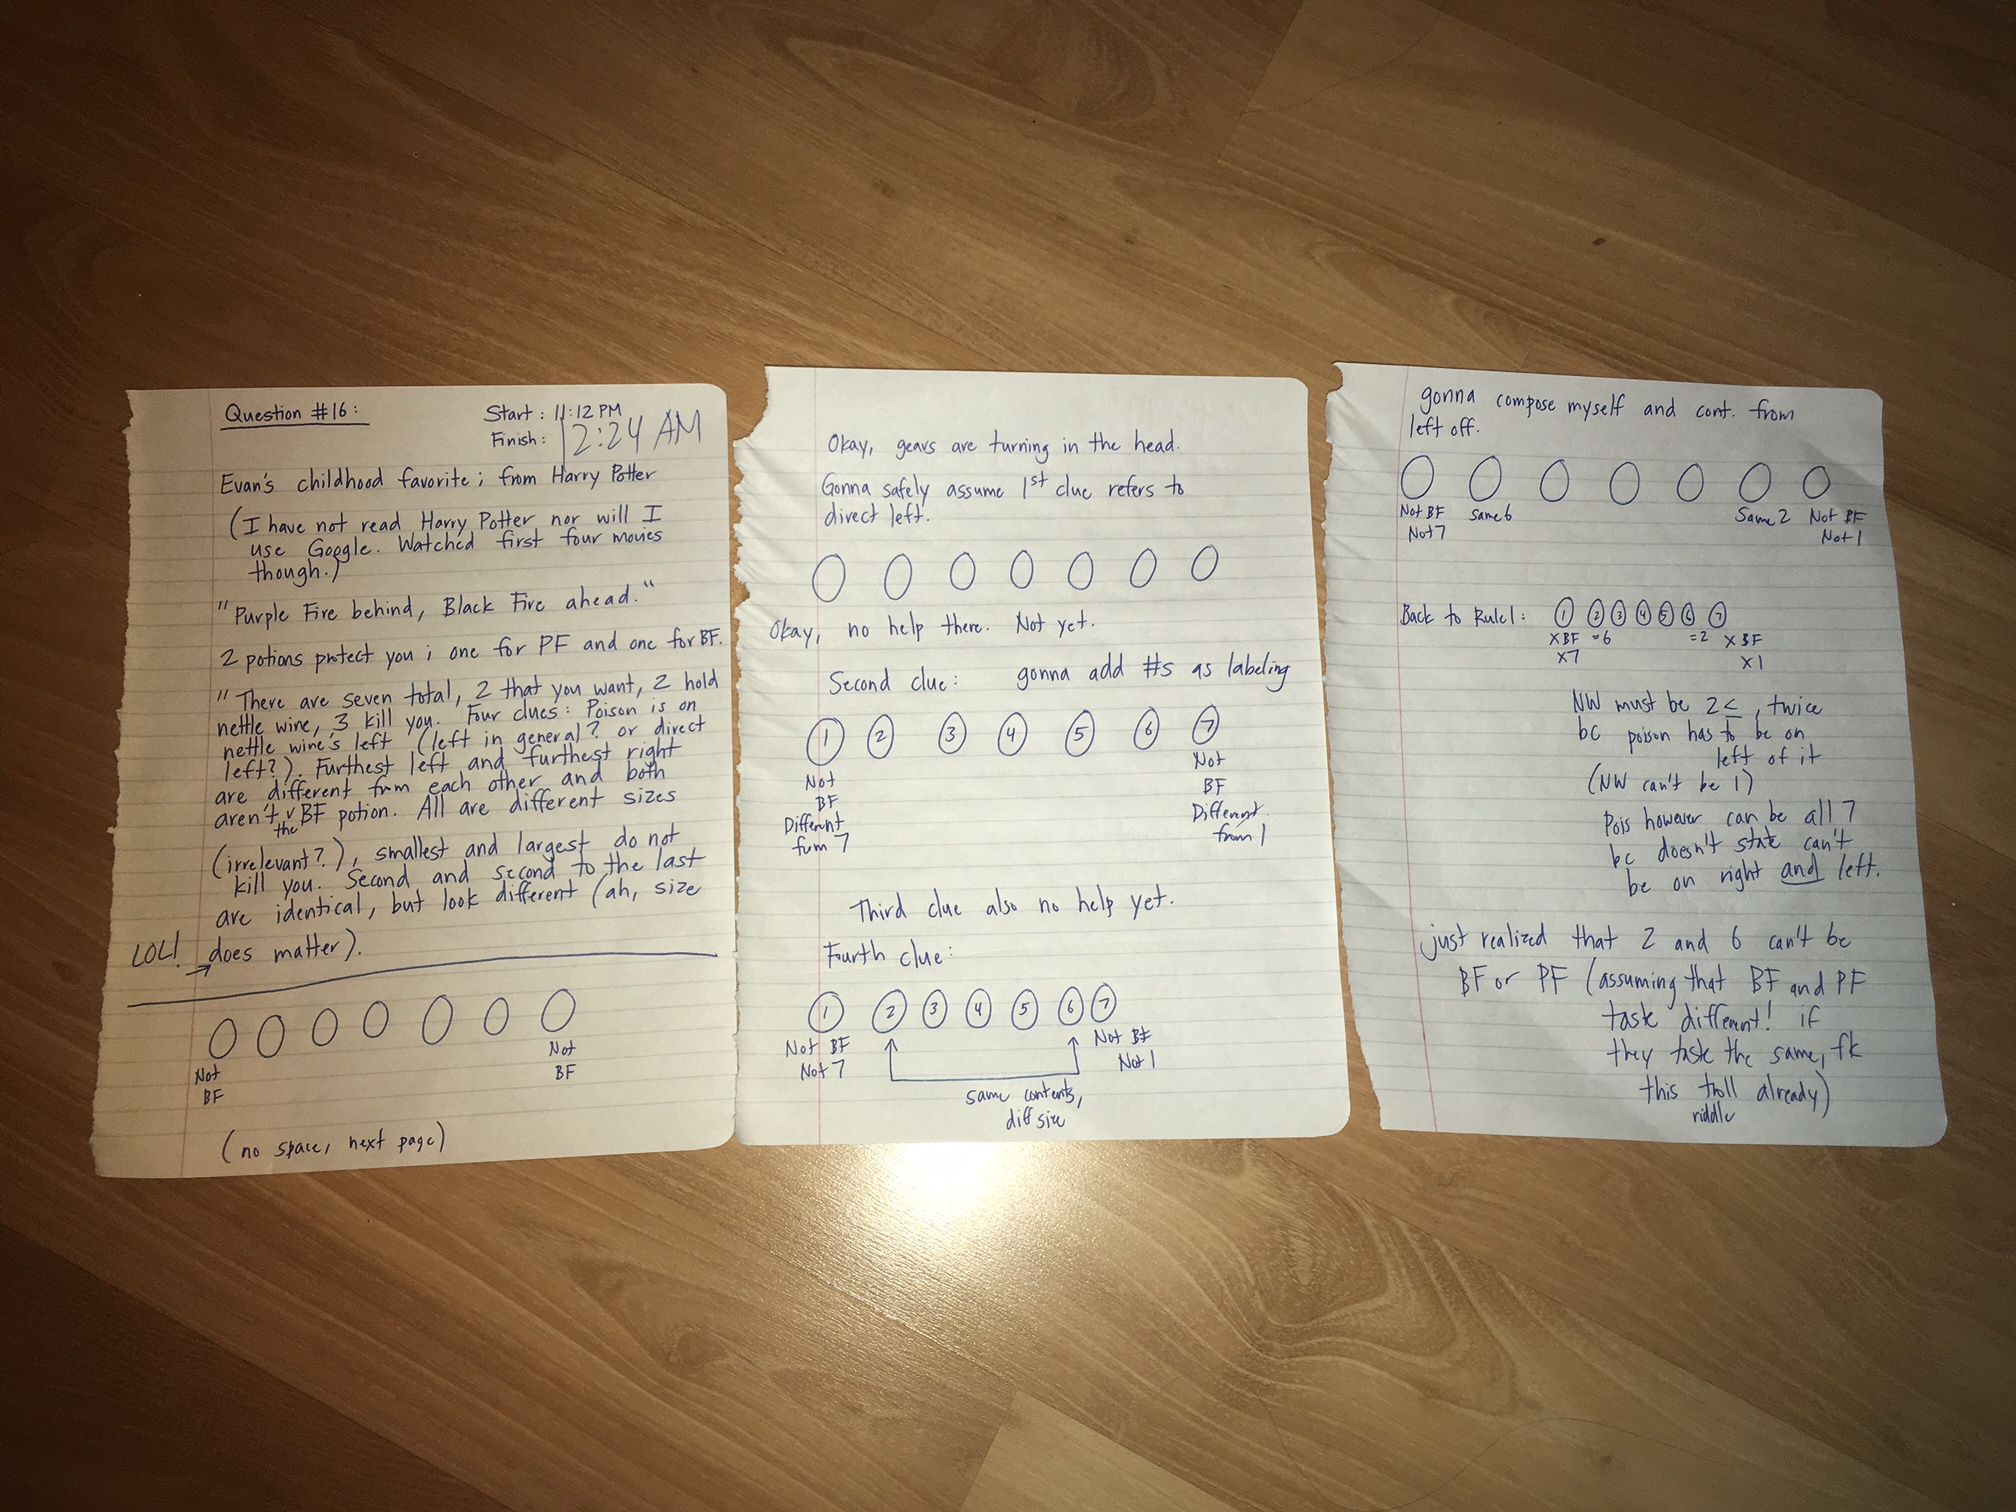 Question #16:
Start: 11:12 PM
Finish: 12:24 AM
Evan's childhood favorite; from Harry Potter
(I have not read Harry Potter nor will I
use Google. Watched first four movies
though.)
"Purple Fire behind, Black Fire ahead."
2 potions protect you; one for PF and one for BF.
"There are seven total, 2 that you want, 2 hold
nettle wine, 3 kill you. Four clues: Poison is on
nettle wine's left (left in general? or direct
left?). Furthest left and furthest right
are different from each other and both
aren't the BF potion. All are different sizes
(irrelevant?), smallest and largest do not
kill you. Second and second to the last
are identical, but look different (ah, size
LOL! → does matter).
Not BF
Not BF
(no space, next page)
Okay, gears are turning in the head.
Gonna safely assume 1st clue refers to
direct left.
Okay, no help there. Not yet.
Second clue: gonna add #s as labeling
1 2 3 4 5 6 7
Not Not
BF BF
Different Different
from 7 from 1
Third clue also no help yet.
Fourth clue:
1 2 3 4 5 6 7
Not BF Not BF
Not 7 Not 1
same contents,
diff size
gonna compose myself and cont. from
left off.
Not BF Same 6 Same 2 Not BF
Not 7 Not 1
Back to Rule 1: 1 2 3 4 5 6 7
XBF =6 =2 XBF
X7 X1
NW must be 2≤, twice
bc poison has to be on
left of it
(NW can't be 1)
Pois however can be all 7
bc doesn't state can't
be on right and left.
just realized that 2 and 6 can't be
BF or PF (assuming that BF and PF
taste different! if
they taste the same, fk
this troll already)
riddle